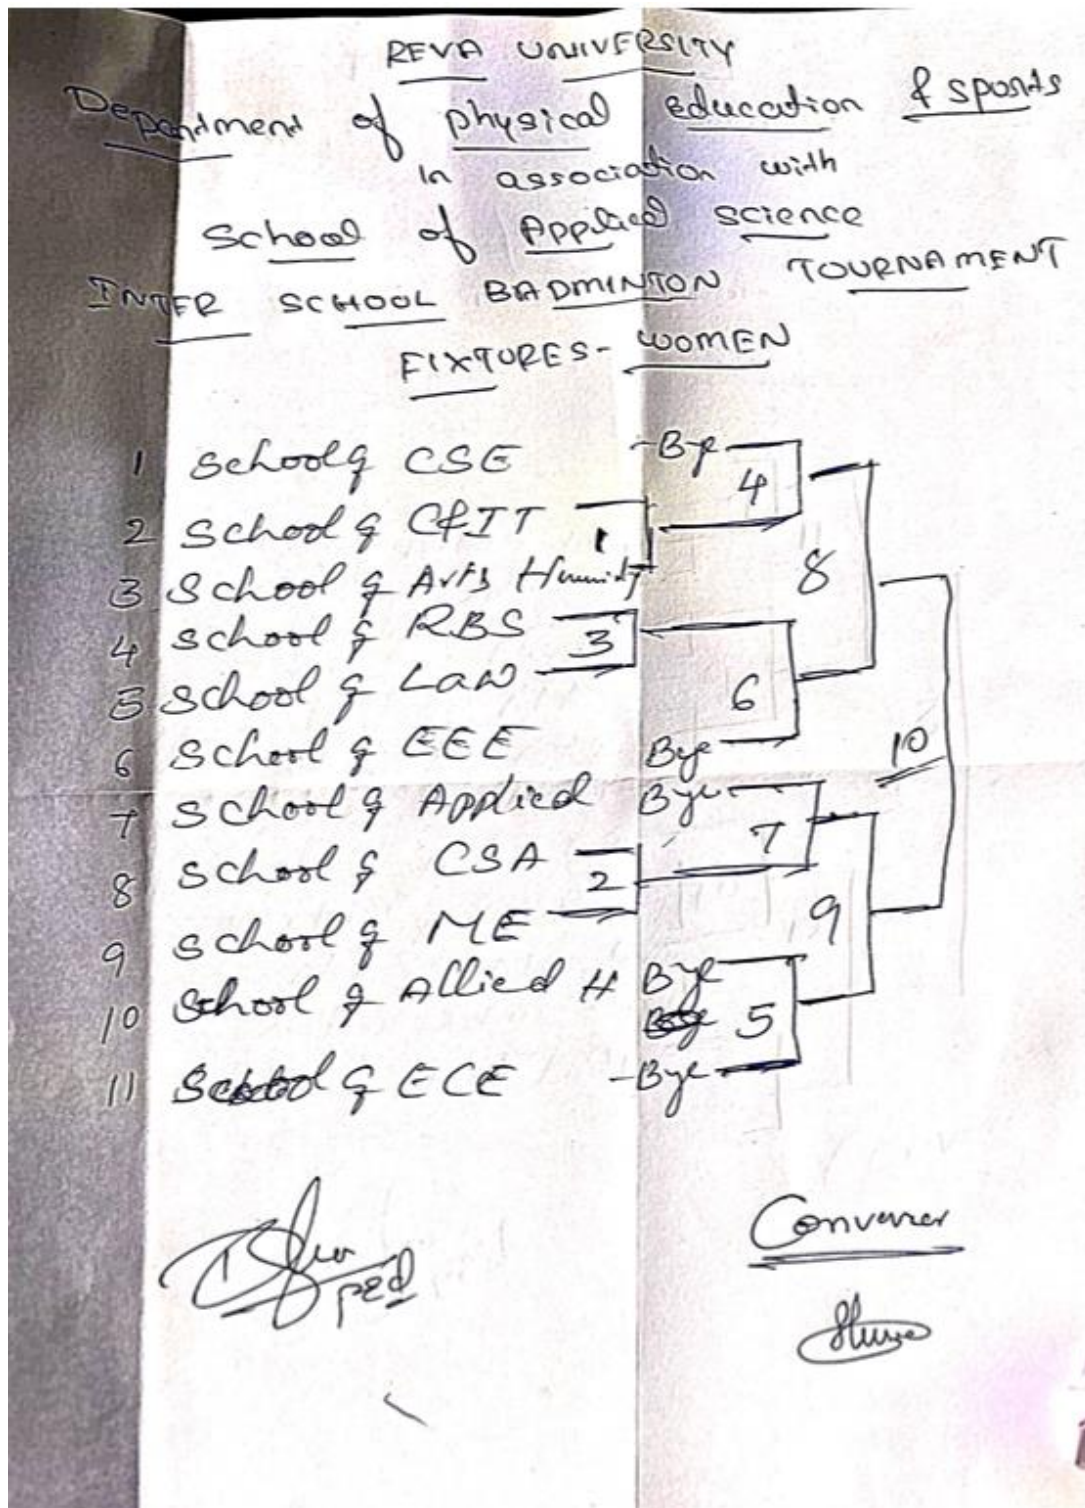 REVA UNIVERSITY
Department of physical education & sports
In association with
School of Applied science
INTER SCHOOL BADMINTON TOURNAMENT
FIXTURES - WOMEN
1 School of CSE - Bye
4
2 School of C&IT
1
3 School of Arts Humidy
8
4 School of RBS
3
5 School of Law
6
6 School of EEE Bye
10
7 School of Applied Bye
7
8 School of CSA
2
9 School of ME
9
10 School of Allied H Bye
5
11 School of ECE - Bye
Convener
PED